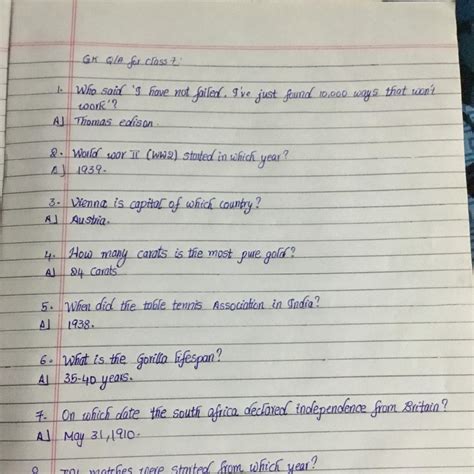 GK Q/A for class 7:
1. Who said 'I have not failed. I've just found 10,000 ways that won't
work'?
A] Thomas edison.
2. World war II (WW2) started in which year?
A] 1939.
3. Vienna is capital of which country?
A] Austria.
4. How many carats is the most pure gold?
A] 24 carats
5. When did the table tennis Association in India?
A] 1938.
6. What is the Gorilla lifespan?
A] 35-40 years.
7. On which date the south africa declared independence from Britain?
A] May 31, 1910.
matches were started from which year?